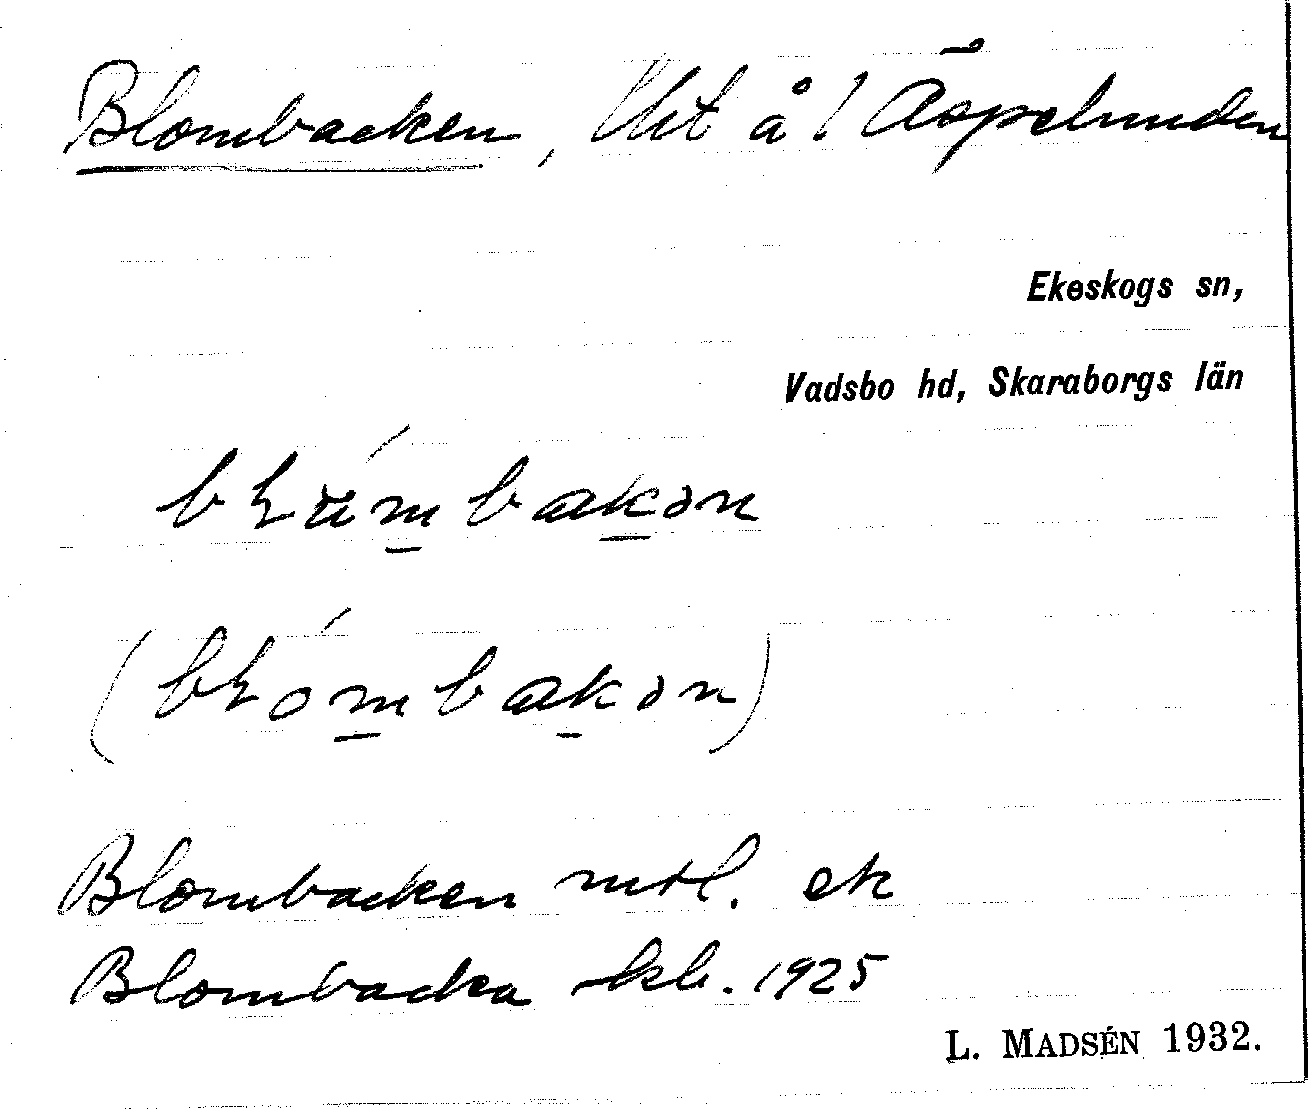 Blombacken, lht å 1 Äspelunden
Ekeskogs sn,
Vadsbo hd, Skaraborgs län
bɫúmbakən
(bɫómbakən)
Blombacken mtl. ek
Blombacka kb. 1925
L. MADSÉN 1932.